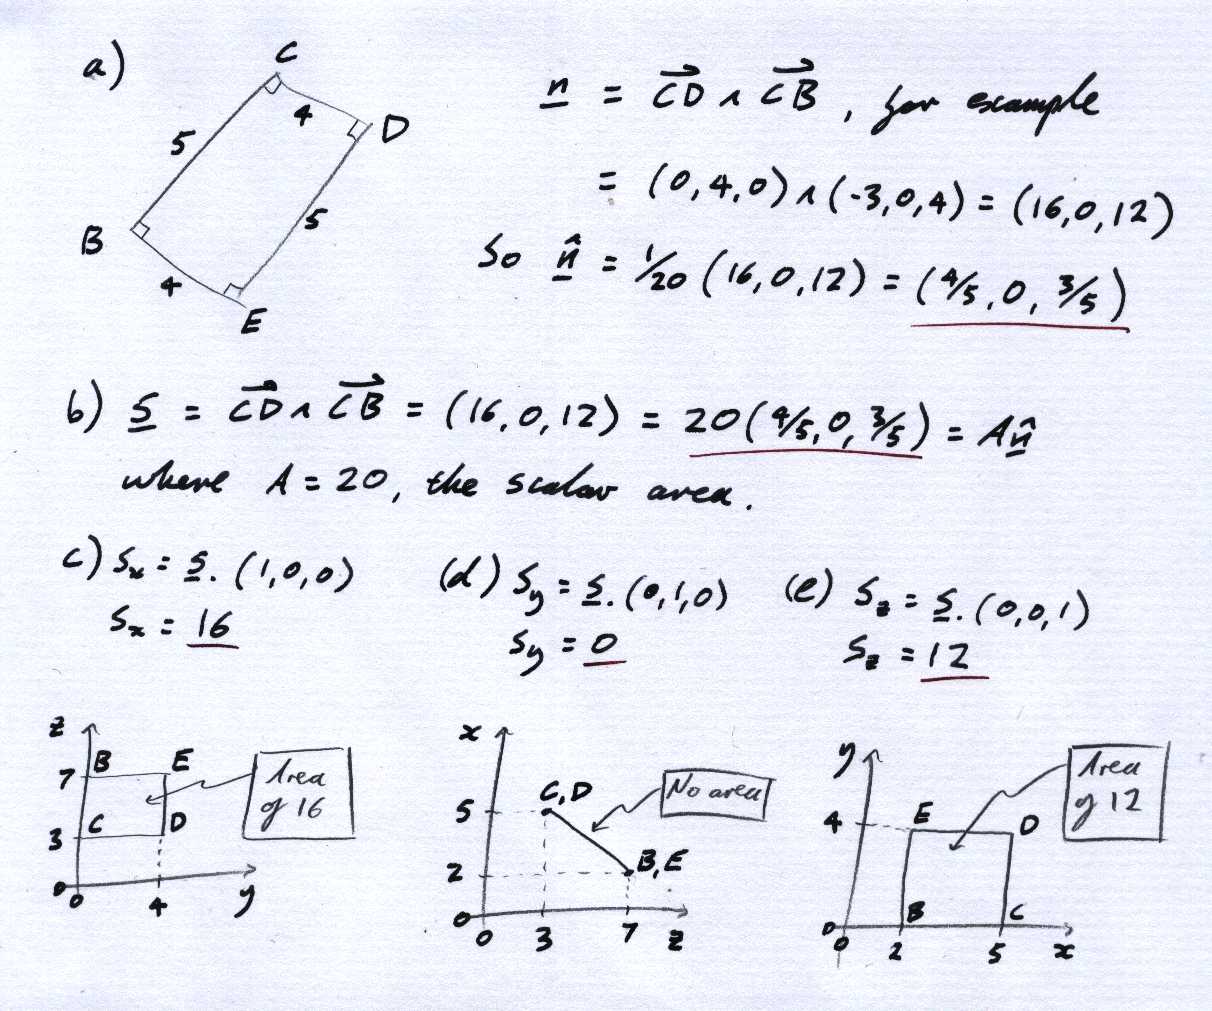 a)
C
4
D
5
5
B
4
E
n = CD ∧ CB, for example
= (0,4,0) ∧ (-3,0,4) = (16,0,12)
So n̂ = 1/20 (16,0,12) = (4/5, 0, 3/5)
b) S = CD ∧ CB = (16,0,12) = 20(4/5, 0, 3/5) = An̂
where A = 20, the scalar area.
c) Sx = S. (1,0,0)
Sx = 16
(d) Sy = S. (0,1,0)
Sy = 0
(e) Sz = S. (0,0,1)
Sz = 12
z
7
B
E
3
C
D
0
0
4
y
Area
of 16
x
5
C,D
2
B,E
0
0
3
7
z
No area
y
4
E
D
B
C
0
0
2
5
x
Area
of 12